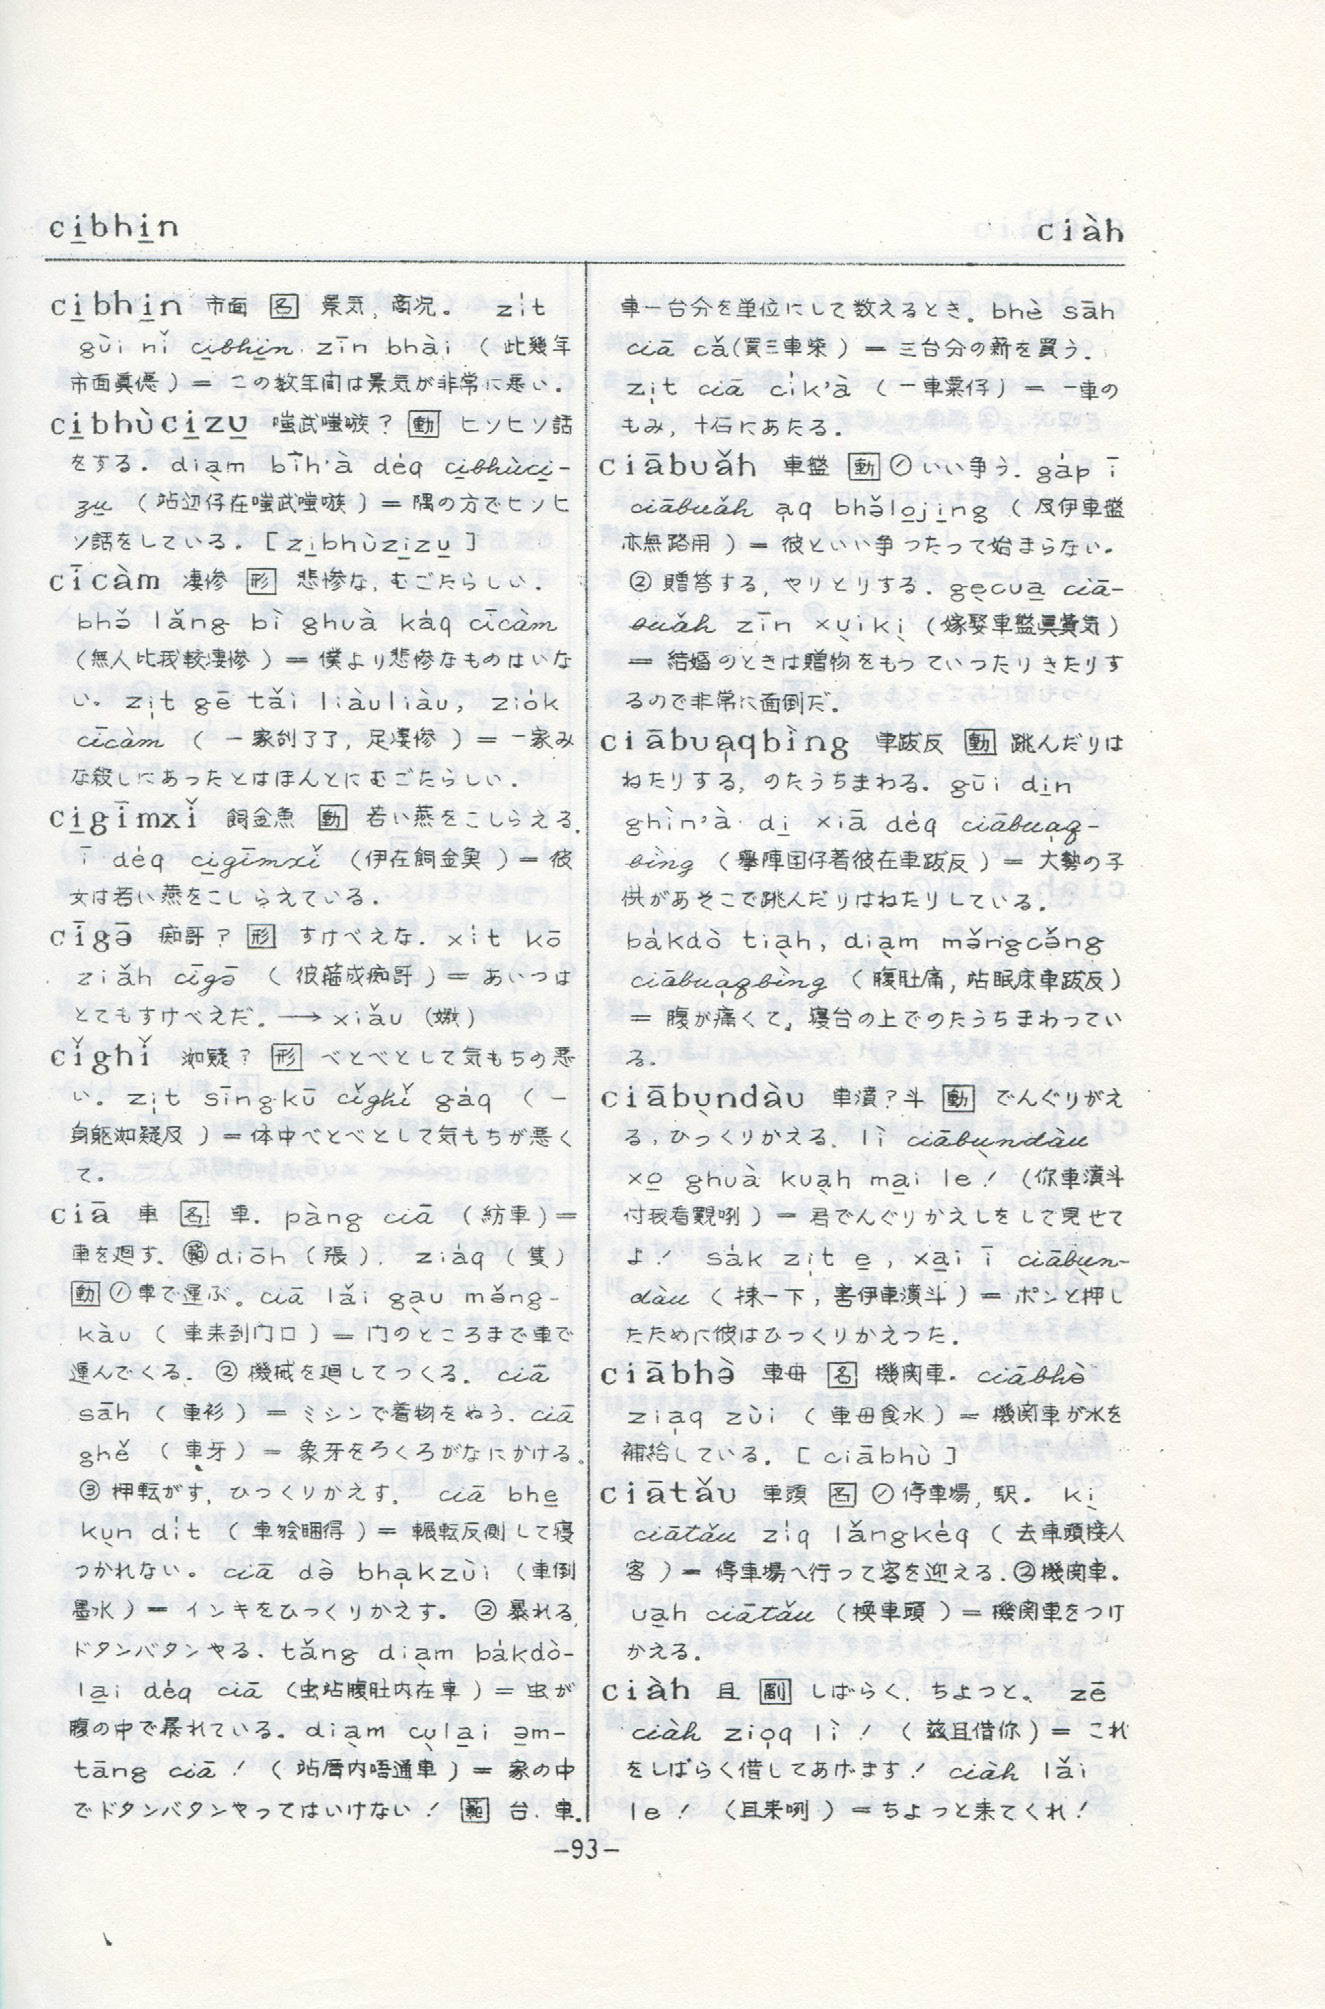 ci̱bhi̱n
ciàh
ci̱bhi̱n 市面 [名] 景気, 商況。 zi̍t
gùi nǐ ci̱bhi̱n zīn bhài (此幾年
市面眞僫) = この数年間は景気が非常に悪い.
ci̱bhùci̱zu̱ 嗤武嗤嗾? [動] ヒソヒソ話
をする. diạm bīh'à de̍q ci̱bhùci̱-
zu̱ (站辺仔在嗤武嗤嗾) = 隅の方でヒソヒ
ソ話をしている. [zi̱bhùzi̱zu̱]
cīcàm 凄惨 [形] 悲惨な, むごたらしい.
bhǒ lǎng bì ghuà ka̍q cīcàm
(無人比我較凄惨) = 僕より悲惨なものはいな
い. zi̍t gē tǎi liàuliàu, zio̍k
cīcàm (一家刣了了, 足凄惨) = 一家み
な殺しにあったとはほんとにむごたらしい.
ci̱gīmxǐ 飼金魚 [動] 若い燕をこしらえる.
ī de̍q ci̱gīmxǐ (伊在飼金魚) = 彼
女は若い燕をこしらえている.
cīgə̄ 痴哥? [形] すけべえな. xi̍t kō
ziǎh cīgə̄ (彼箍成痴哥) = あいつは
とてもすけべえだ. → xiǎu (嬈)
cǐghǐ [形] べとべとして気もちの悪
い. zi̍t sīngkū cǐghǐ ga̍q (一
) = 体中べとべとして気もちが悪く
て.
ciā 車 [名] 車. pàng ciā (紡車) =
車を廻す. diōh (張). zia̍q (隻)
[動] ① 車で運ぶ. ciā lǎi gạu mǎng-
kàu (車来到门口) = 门のところまで車で
運んでくる. ② 機械を廻してつくる. ciā
sāh (車衫) = ミシンで着物をぬう. ciā
ghě (車牙) = 象牙をろくろがなにかける.
③ 押転がす, ひっくりかえす. ciā bhe̱
kụn di̍t (車䆀睏得) = 輾転反側して寝
つかれない. ciā də̀ bha̍kzùi (車倒
墨水) = インキをひっくりかえす. ② 暴れる,
ドタンバタンやる. tǎng diạm ba̍kdò-
la̱i de̍q ciā (虫站腹肚内在車) = 虫が
腹の中で暴れている. diạm cụla̱i ə̱m-
tāng ciā! (站厝内唔通車) = 家の中
でドタンバタンやってはいけない! 台. 車.
車一台分を単位にして数えるとき. bhè sāh
ciā cǎ (買三車柴) = 三台分の薪を買う.
zi̍t ciā ci̍k'à (一車粟仔) = 一車の
もみ, 十石にあたる.
ciābuǎh 車盤 [動] ① いい争う. ga̍p ī
ciābuǎh a̱q bhǒlo̱ji̱ng (及伊車盤
亦無路用) = 彼といい争ったって始まらない.
② 贈答する, やりとりする. gẹcua̱ ciā-
buǎh zīn xụikị (嫁娶車盤眞費気)
= 結婚のときは贈物をもっていったりきたりす
るので非常に面倒だ.
ciābuạqbìng 車跋反 [動] 跳んだりは
ねたりする, のたうちまわる. gūi di̱n
ghìn'à di̱ xiā de̍q ciābuạq-
bìng (擧陣囝仔著彼在車跋反) = 大勢の子
供があそこで跳んだりはねたりしている.
ba̍kdò tiạh, diạm mǎngcǎng
ciābuạqbìng (腹肚痛, 站眠床車跋反)
= 腹が痛くて, 寝台の上でのたうちまわってい
る.
ciābụndàu 車濆?斗 [動] でんぐりがえ
る, ひっくりかえる. lì ciābụndàu
xo̱ ghuà kuạh ma̱i le! (你車濆斗
付我看覭咧) = 君でんぐりかえしをして見せて
よ! sa̍k zi̍t e̱, xa̱i ī ciābụn-
dàu (捒一下, 害伊車濆斗) = ポンと押し
たために彼はひっくりかえった.
ciābhə̀ 車母 [名] 機関車. ciābhə̀
ziạq zùi (車母食水) = 機関車が水を
補給している. [ciābhù]
ciātǎu 車頭 [名] ① 停車場, 駅. kị
ciātǎu zi̍q lǎngke̍q (去車頭接人
客) = 停車場へ行って客を迎える. ② 機関車.
ua̱h ciātǎu (換車頭) = 機関車をつけ
かえる.
ciàh 且 [副] しばらく, ちょっと. zē
ciàh ziọq lì! (玆且借你) = これ
をしばらく借してあげます! ciàh lǎi
le! (且来咧) = ちょっと来てくれ!
-93-